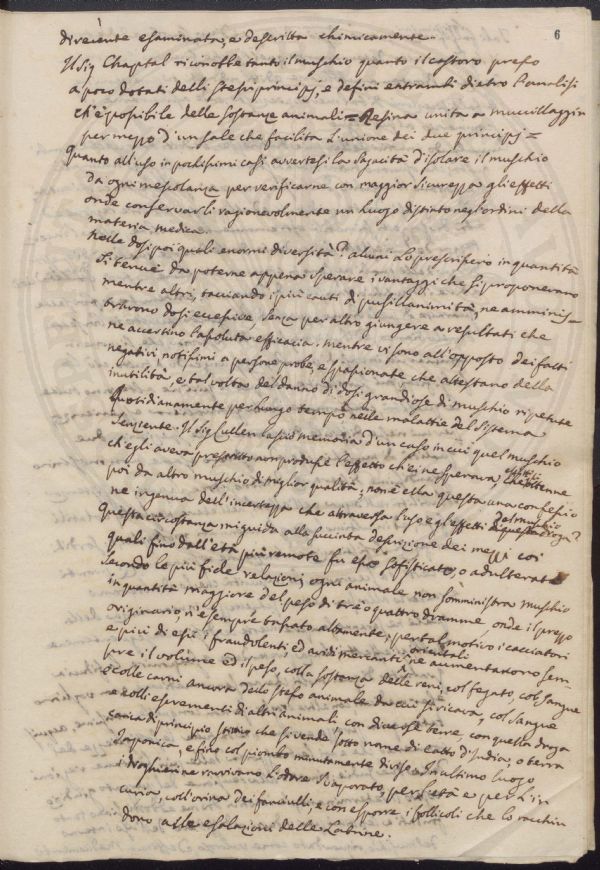 6
diveniente esaminata, e descritta chimicamente.
Il Sig Chaptal riconobbe tanto il muschio quanto il castoro presso
a poco dotati delli stessi principj, e definì entrambi dietro l'analisi
ch'è possibile delle sostanze animali = Resina unita a mucillaggin
per mezzo d'un sale che facilita l'unione dei due principj =
Quanto all'uso in pochissimi casi avvertesi la sagacità d'isolare il muschio
da ogni mescolanza per verificarne con maggior sicurezza gli effetti
onde conservarli ragionevolmente un luogo distinto negli ordini della
materia medica.
Nelle dosi poi quali enormi diversità? alcuni lo prescrissero in quantità
sì tenue da poterne appena sperare i vantaggi che si proponevano
mentre altri, tacciando i più cauti di pusillanimità, ne amminis=
travono dosi eccessive, senza per altro giungere a resultati che
ne accertino l'assoluta efficacia. mentre vi sono all'opposto dei fatti
negativi notissimi a persone probe, e spassionate che attestano della
inutilità, e talvolta del danno di dosi grandiose di muschio ripetute
quotidianamente per lungo tempo nelle malattie del sistema
senziente. Il Sig Cullen lasciò memoria d'un caso in cui quel muschio
ch'egli aveva prescritto non produsse l'effetto ch'ei ne sperava, che ottenne
poi da altro muschio di miglior qualità; non è ella questa una confessio
ne ingenua dell'incertezza che attraversa l'uso e gli effetti di questa droga?
del muschio
Questa circostanza mi guida alla succinta descrizione dei mezzi coi
quali fino dall'età più remote fu esso sofisticato, o adulterato
Secondo le più fide relazioni ogni animale non somministra muschio
in quantità maggiore del peso di tre o quattro dramme onde il prezzo
originario, si è sempre trovato altamente; per tal motivo i cacciatori
e più di essi i fraudolenti, ed avidi mercanti orientali ne aumentarono sem=
pre il volume ed il peso, colla sostanza delle reni, col fegato, col sangue
e colle carni ancora dello stesso animale da cui si ricava, col sangue
e colli escrementi di altri animali con diverse terre, con questa droga
carica di principio stittico che si vende sotto nome di catto d'India, o terra
Japonica, e fino col piombo minutamente diviso. In ultimo luogo
i droghieri ne ravvivano l'odore svaporato, per l'età e per l'in
curia, coll'orina dei fanciulli, e con esporre i follicoli che lo racchiu
dono alle esalazioni delle Latrine.